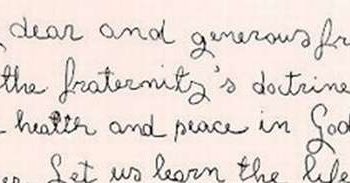 dear and generous fr
the fraternity's doctrine
health and peace in God
er. Let us learn the life